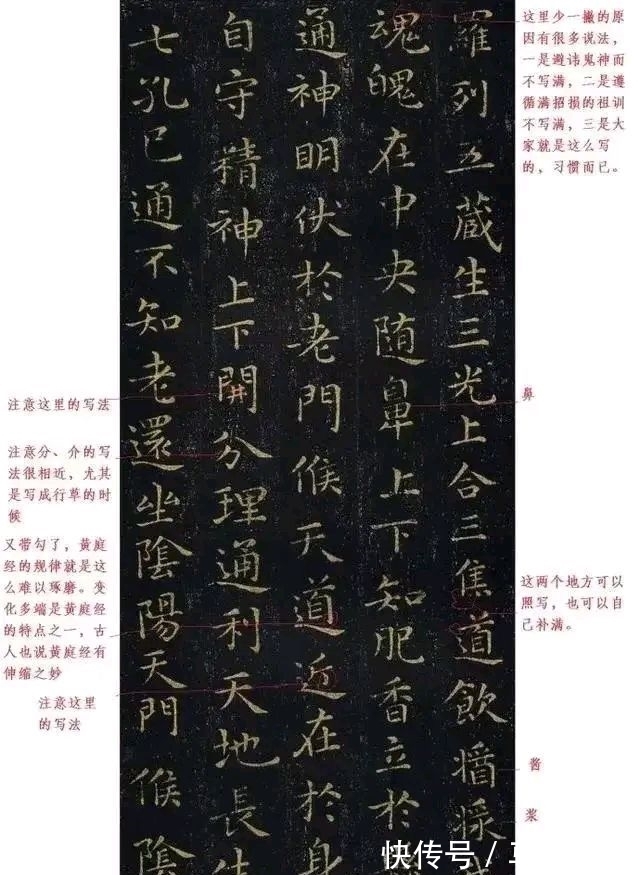 羅列五蔵生三光上合三焦道飲
魂魄在中央随鼻上下知肥香立於
通神明伏於老門候天道近在於身
自守精神上下開分理通利天地長生
七孔已通不知老還坐陰陽天門候陰
这里少一撇的原
因有很多说法，
一是避讳鬼神而
不写满，二是遵
循满招损的祖训
不写满，三是大
家就是这么写
的，习惯而已。
鼻
这两个地方可以
照写，也可以自
己补满。
酱
浆
注意这里的写法
注意分、介的写
法很相近，尤其
是写成行草的时
候
又带勾了，黄庭
经的规律就是这
么难以琢磨。变
化多端是黄庭经
的特点之一，古
人也说黄庭经有
伸缩之妙
注意这里
的写法
快传号／